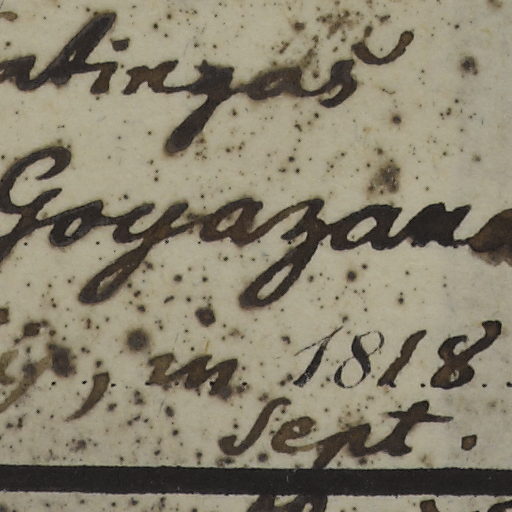 atingas
Goyazana
ij, in 1818.
Sept.